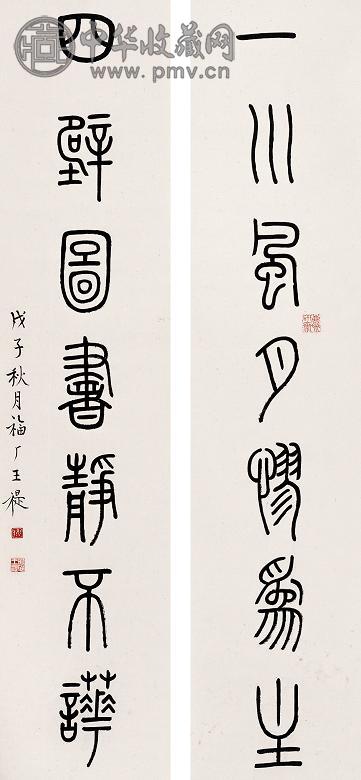 中华收藏网
www.pmv.cn
一川風月憀為主
四壁圖書靜不譁
戊子秋月福厂王禔